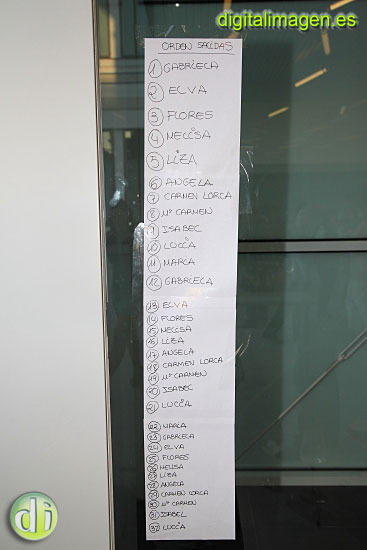 digitalimagen.es
ORDEN SALIDAS
1 GABRIELA
2 ELVA
3 FLORES
4 MELISA
5 LIZA
6 ANGELA
7 CARMEN LORCA
8 Mª CARMEN
9 ISABEL
10 LUCÍA
11 MARIA
12 GABRIELA
13 ELVA
14 FLORES
15 MELISA
16 LIZA
17 ANGELA
18 CARMEN LORCA
19 Mª CARMEN
20 ISABEL
21 LUCÍA
22 MARIA
23 GABRIELA
24 ELVA
25 FLORES
26 MELISA
27 LIZA
28 ANGELA
29 CARMEN LORCA
30 Mª CARMEN
31 ISABEL
32 LUCÍA
di